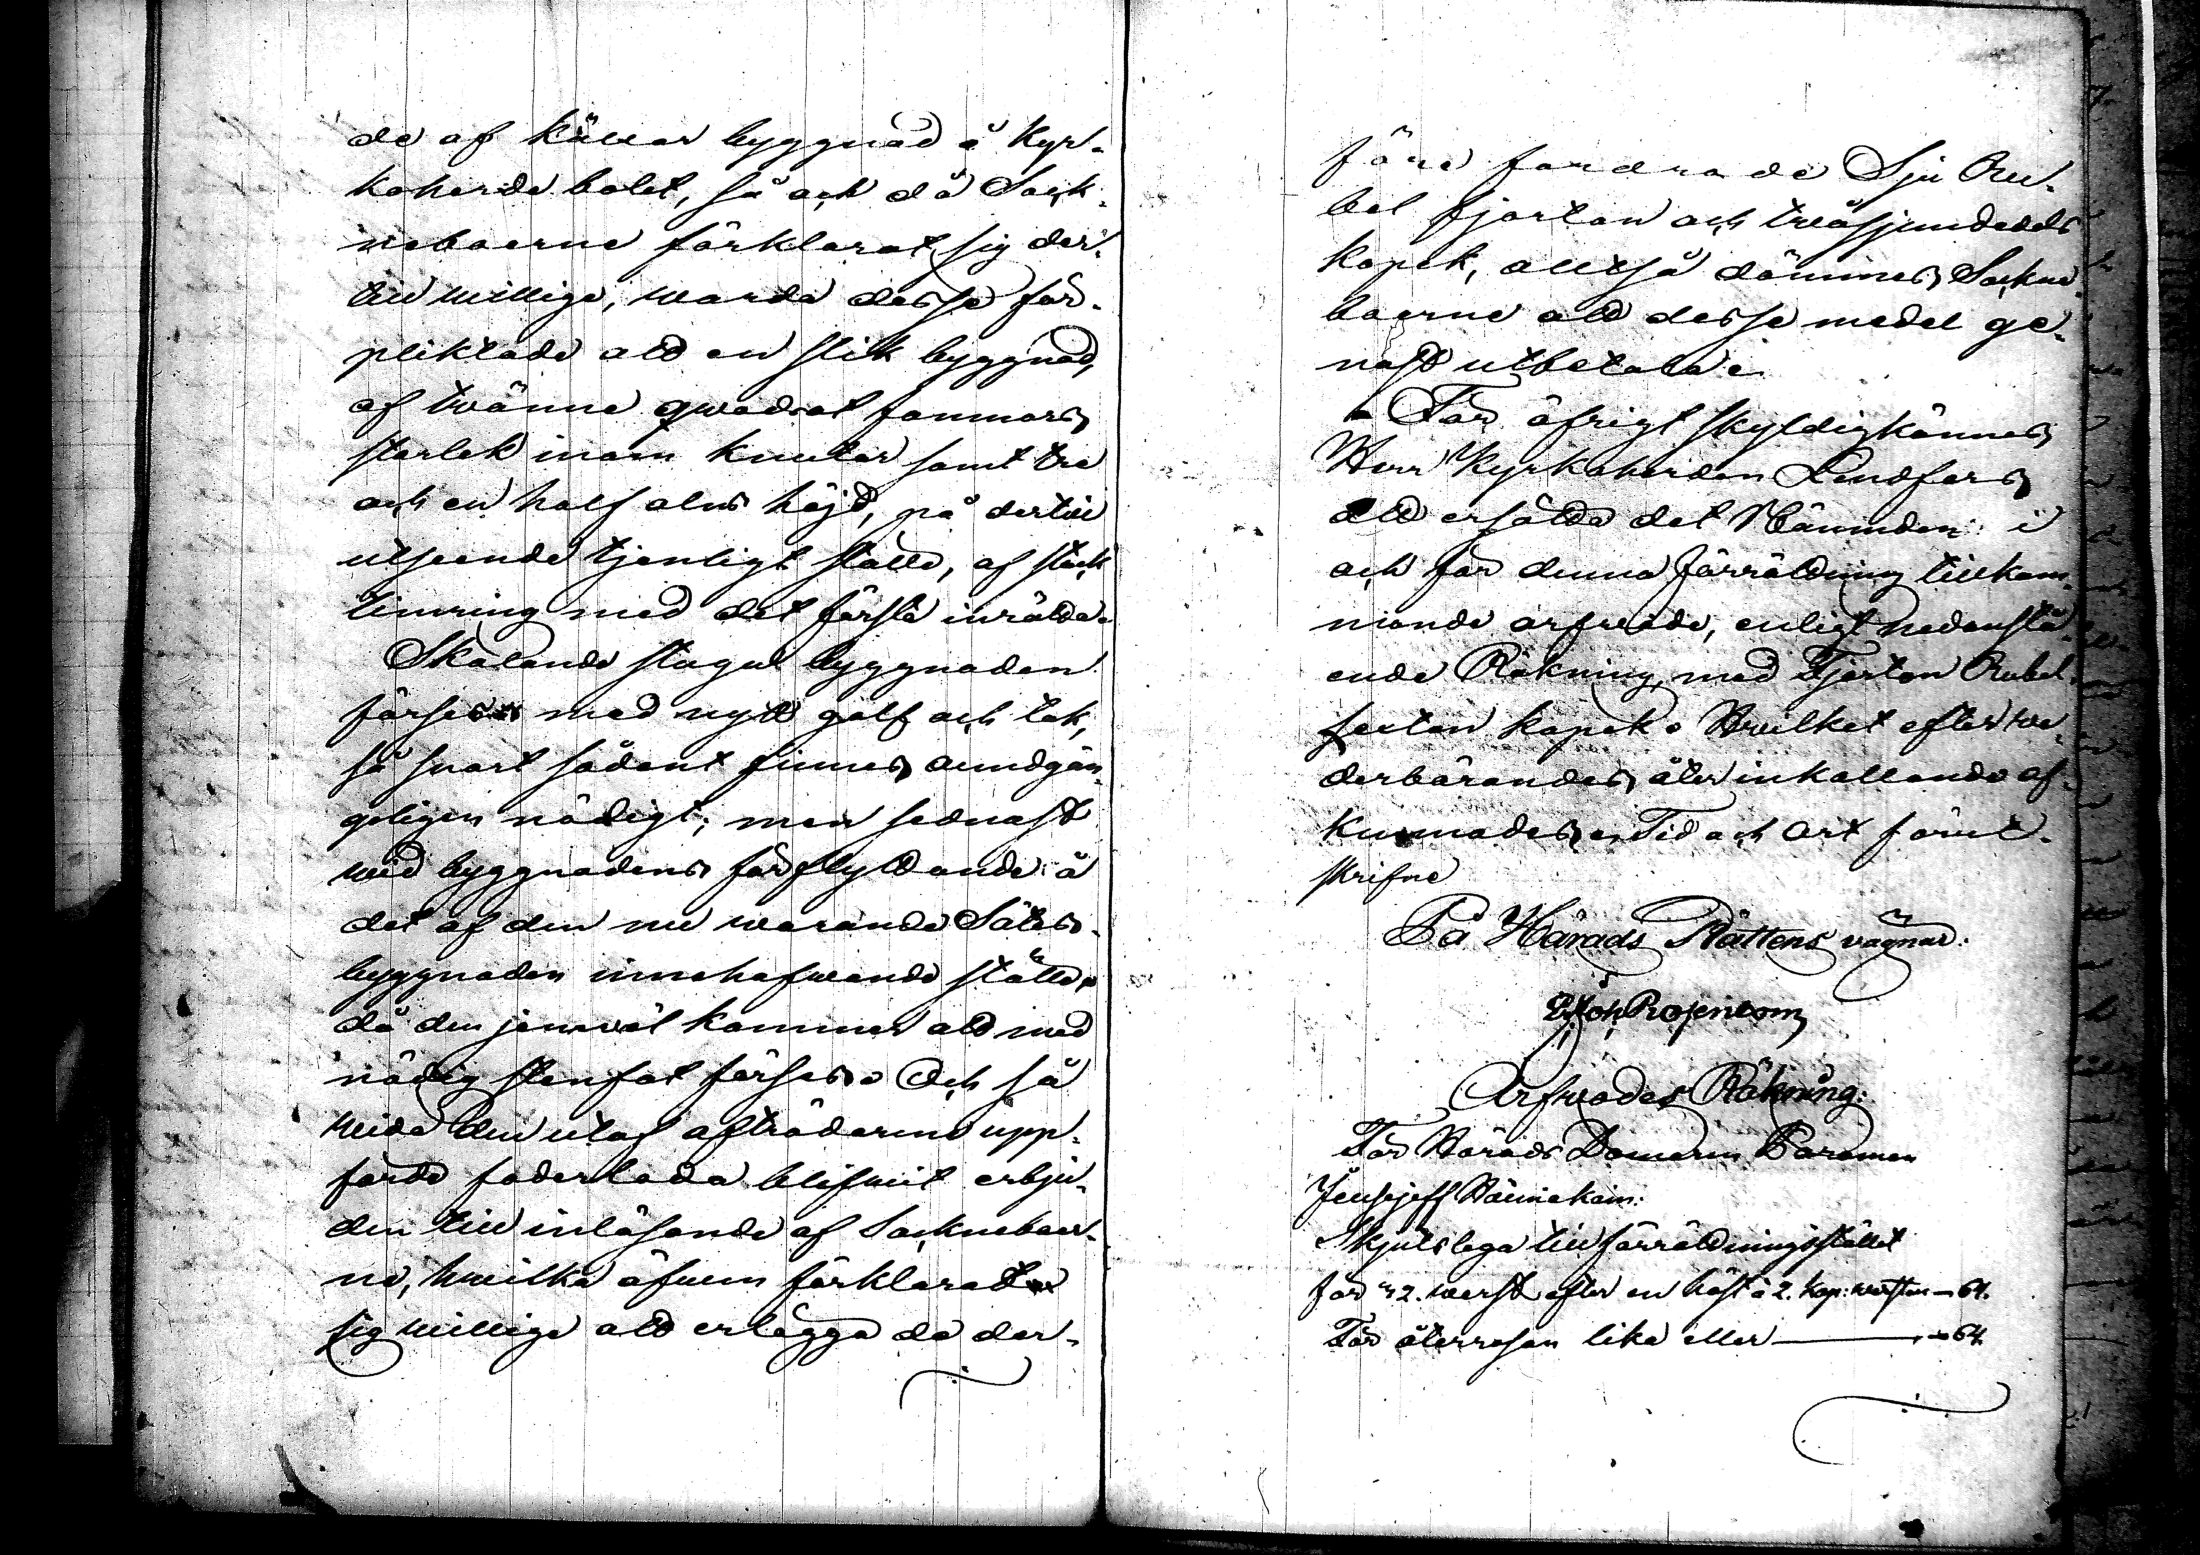 de af källar byggnad å Kyr-
koherde bolet, så och då Sock-
neboerne förklarat sig der-
till willige, warda desse för-
pliktade att en slik byggnad,
af twänne qwadrat famnars
storlek inom knutar samt tre
och en half alns höjd, på dertill
utseende tjenligt ställe, af stock
timring med det första inrätta.
Skolande stugu byggnaden
förses med nytt golf och tak,
så snart sådant finnes oundgän-
geligen nödigt; men sednast
wid byggnadens förflyttande å
det af den nu warande Sätes-
byggnaden innehafwande ställe,
då den jemwäl kommer att med
nödig stenfot förses. Och så
wida den utaf afträdaren upp-
förde foderlada blifwit erbju-
den till inlösande af Sockneboer-
ne, hwilka äfwen förklarat
sig willige att erlägga de der-
före fordrade Sju Ru-
bel fjorton och twåsjundedels
kopek, alltså dömmes Sockne-
boerne att desse medel ge-
nast utbetala.
För öfrigt skyldigkännes
Herr Kyrkoherden Landfors
att ersätta det Nämnden i
och för denna förrättning tillkom-
mande arfwode, enligt nedanstå-
ende Räkning, med Fjorton Rubel
sexton kopek. Hwilket efter we-
derbörandes återinkallande af-
kunnades. Tid och Ort förut-
skrifne
På Härads Rättens vägnar:
Arfwodes Räkning:
För Härads Domaren Paromen
Jeusejeff Hännikain:
Skjutslega till förrättningsstället
för 32. werst efter en häst à 2. kop: wersten — 64.
För återresan lika eller — 64.